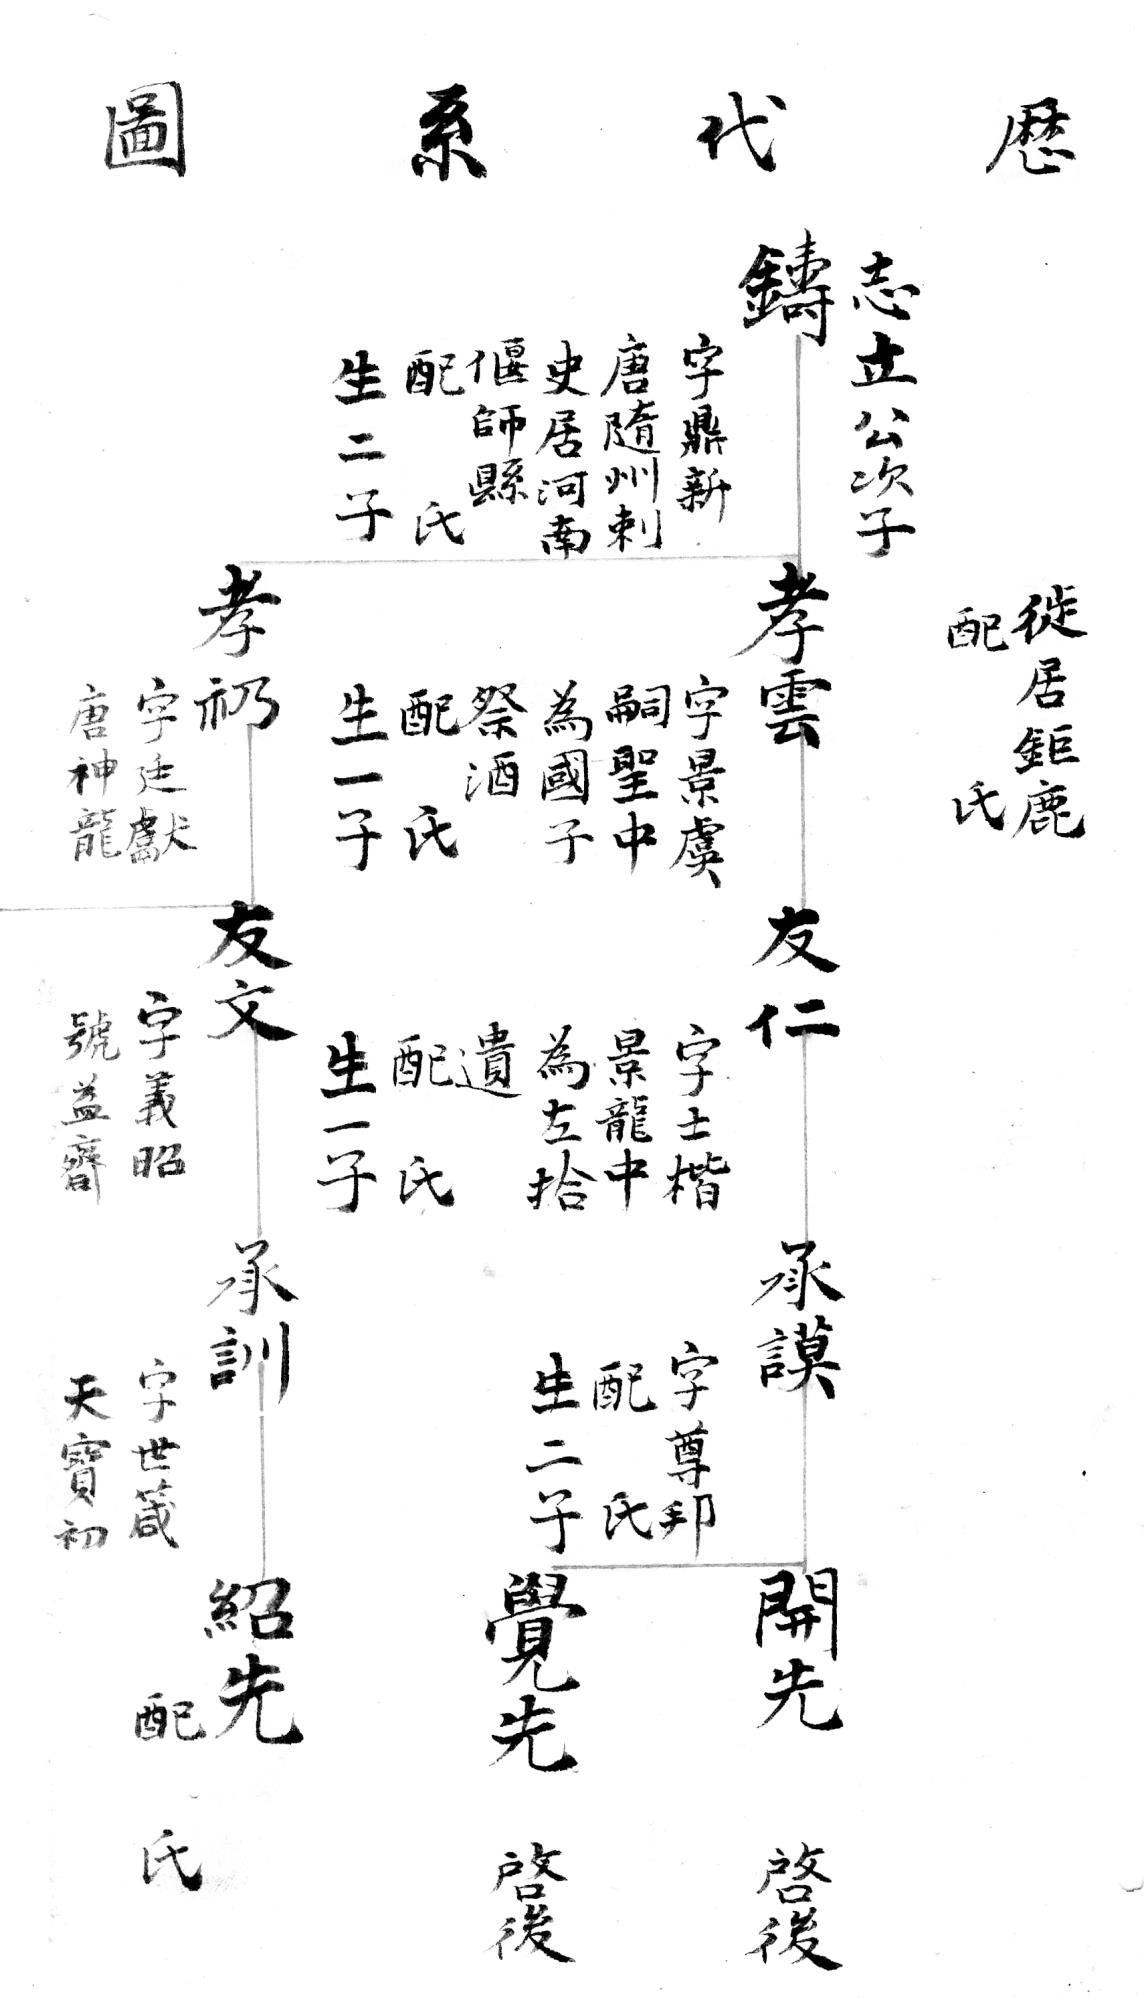 歷代系圖
徙居鉅鹿
配 氏
志立公次子
鑄
字鼎新
唐隨州刺
史居河南
偃師縣
配 氏
生二子
孝雲
字景虞
嗣聖中
為國子
祭酒
配 氏
生一子
孝礽
字廷獻
唐神龍
友仁
字士楷
景龍中
為左拾
遺
配 氏
生一子
友文
字義昭
號益齋
承謨
字尊邦
配 氏
生二子
承訓
字世箴
天寶初
開先
啓後
覺先
啓後
紹先
配 氏